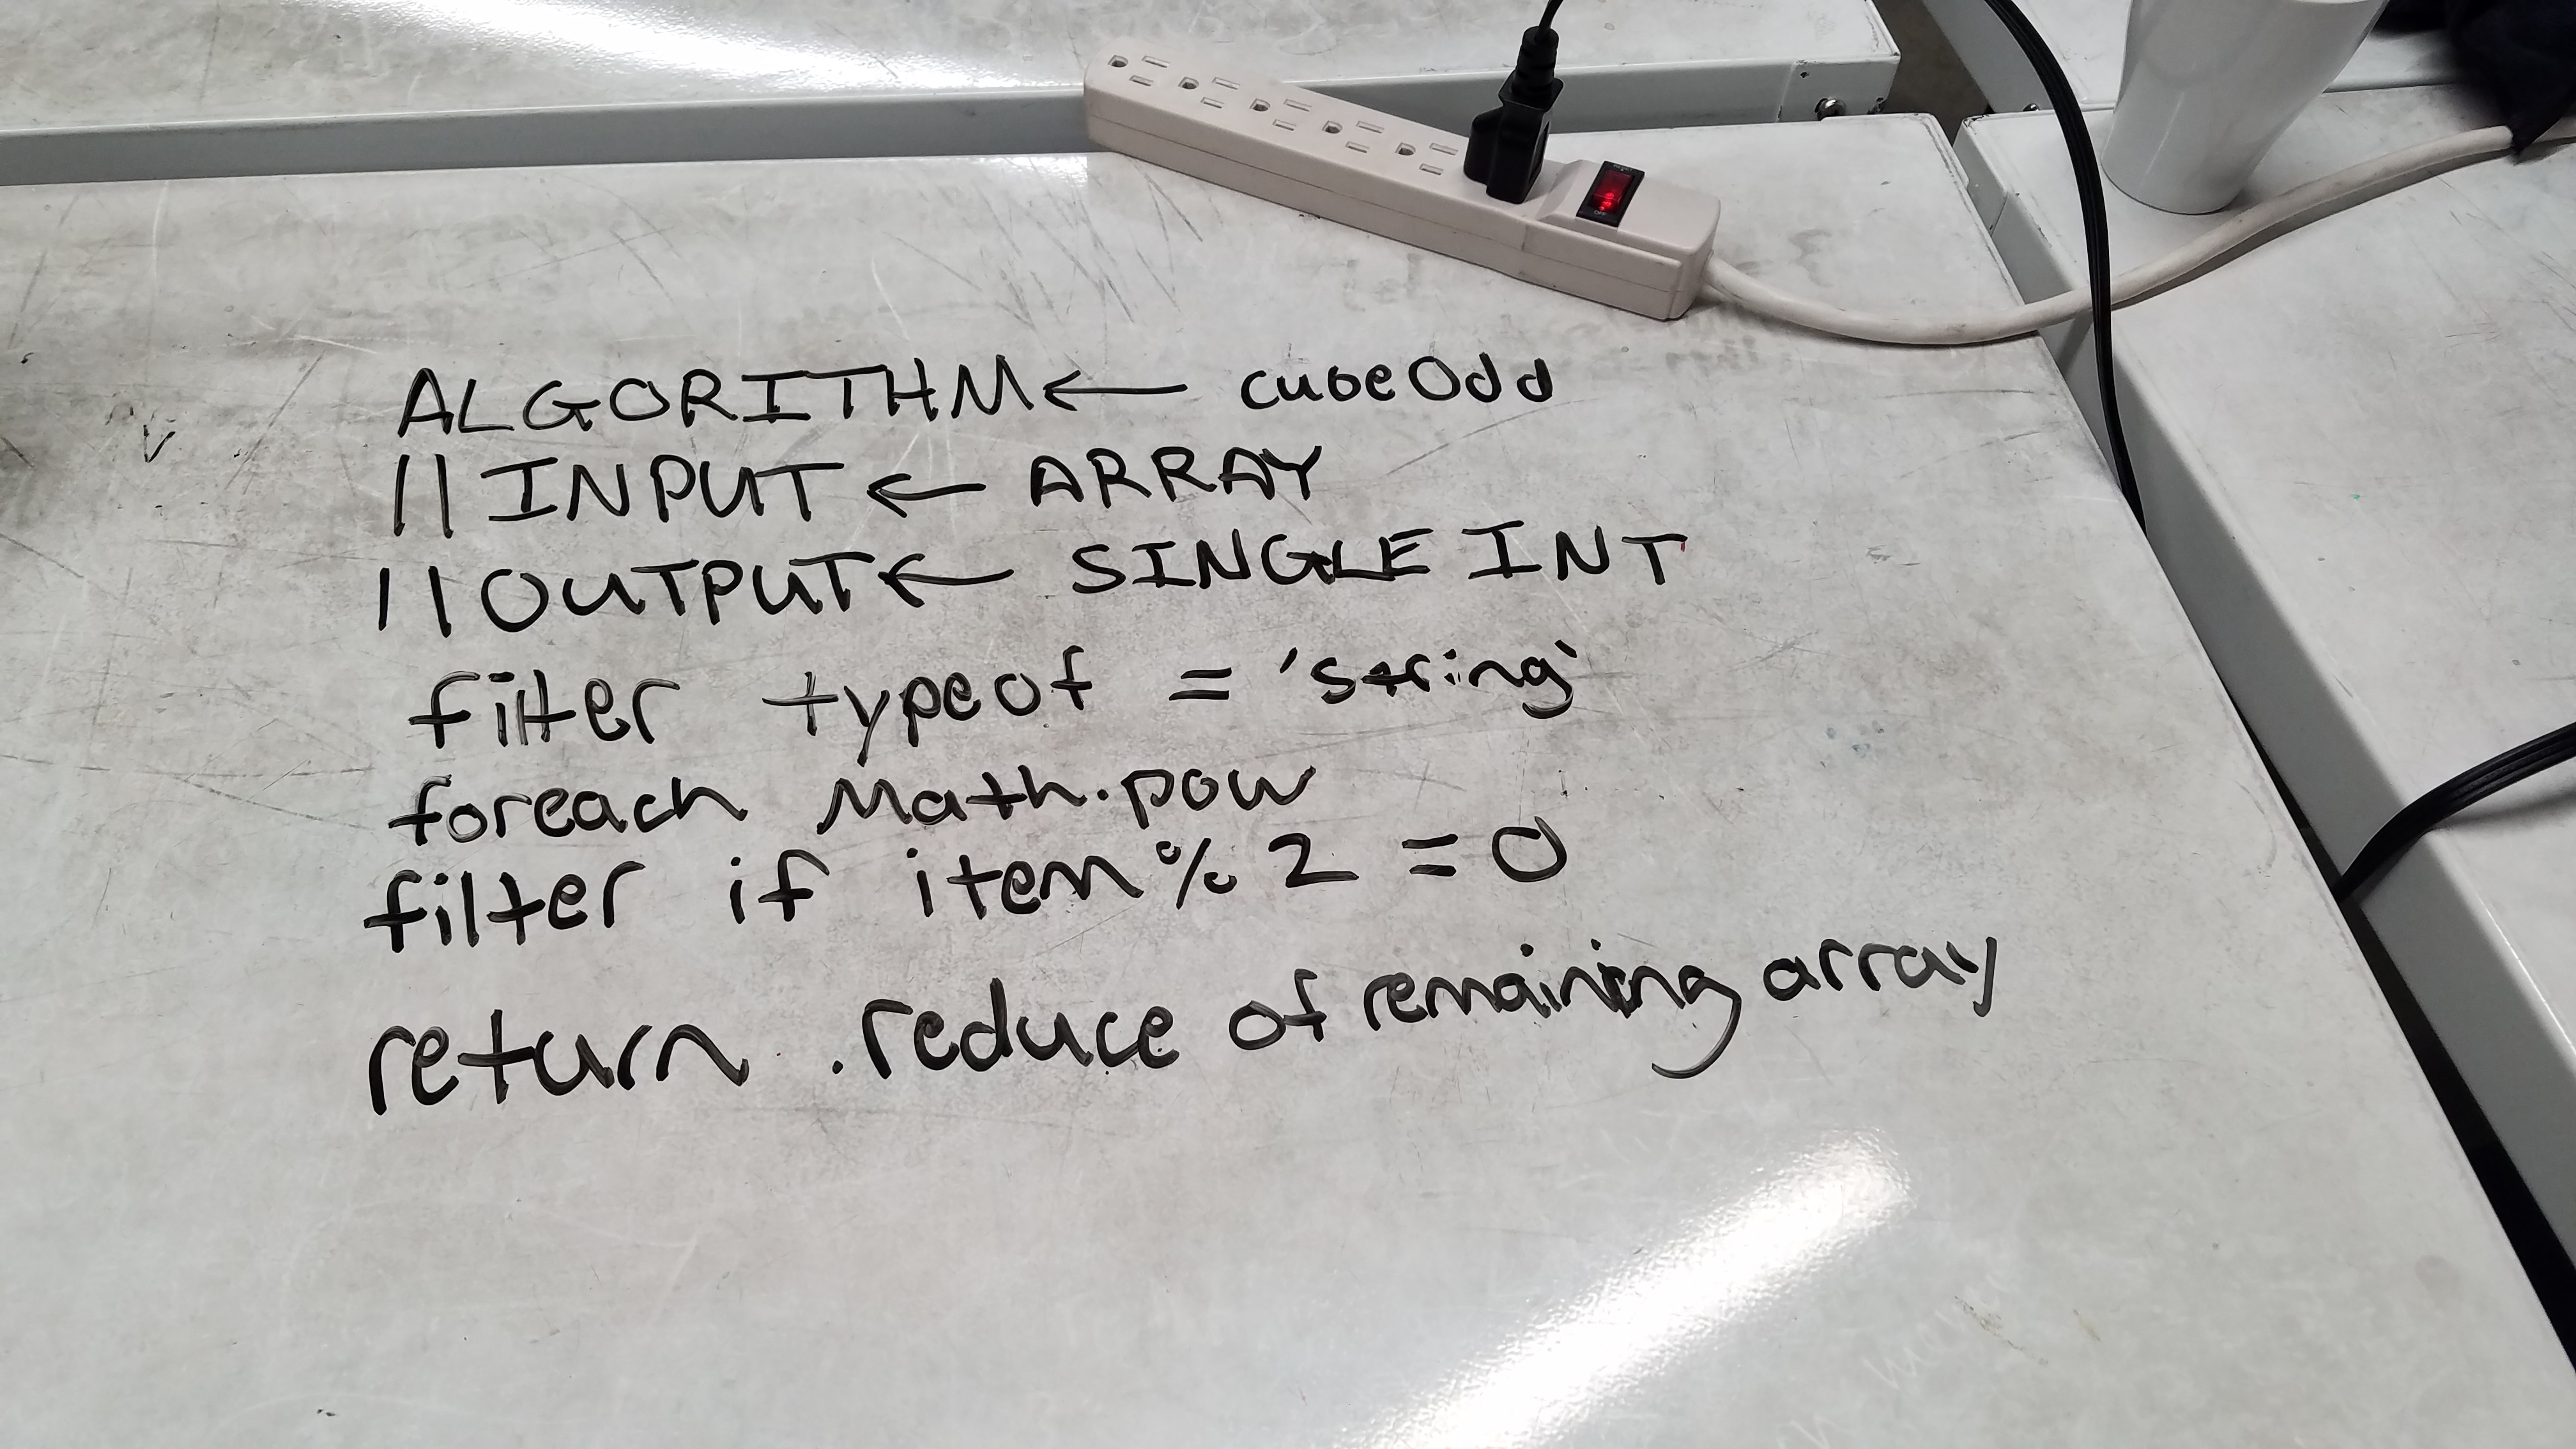 ALGORITHM ← cubeOdd
// INPUT ← ARRAY
// OUTPUT ← SINGLE INT
filter typeof = 'string'
foreach Math.pow
filter if item % 2 = 0
return .reduce of remaining array
OFF